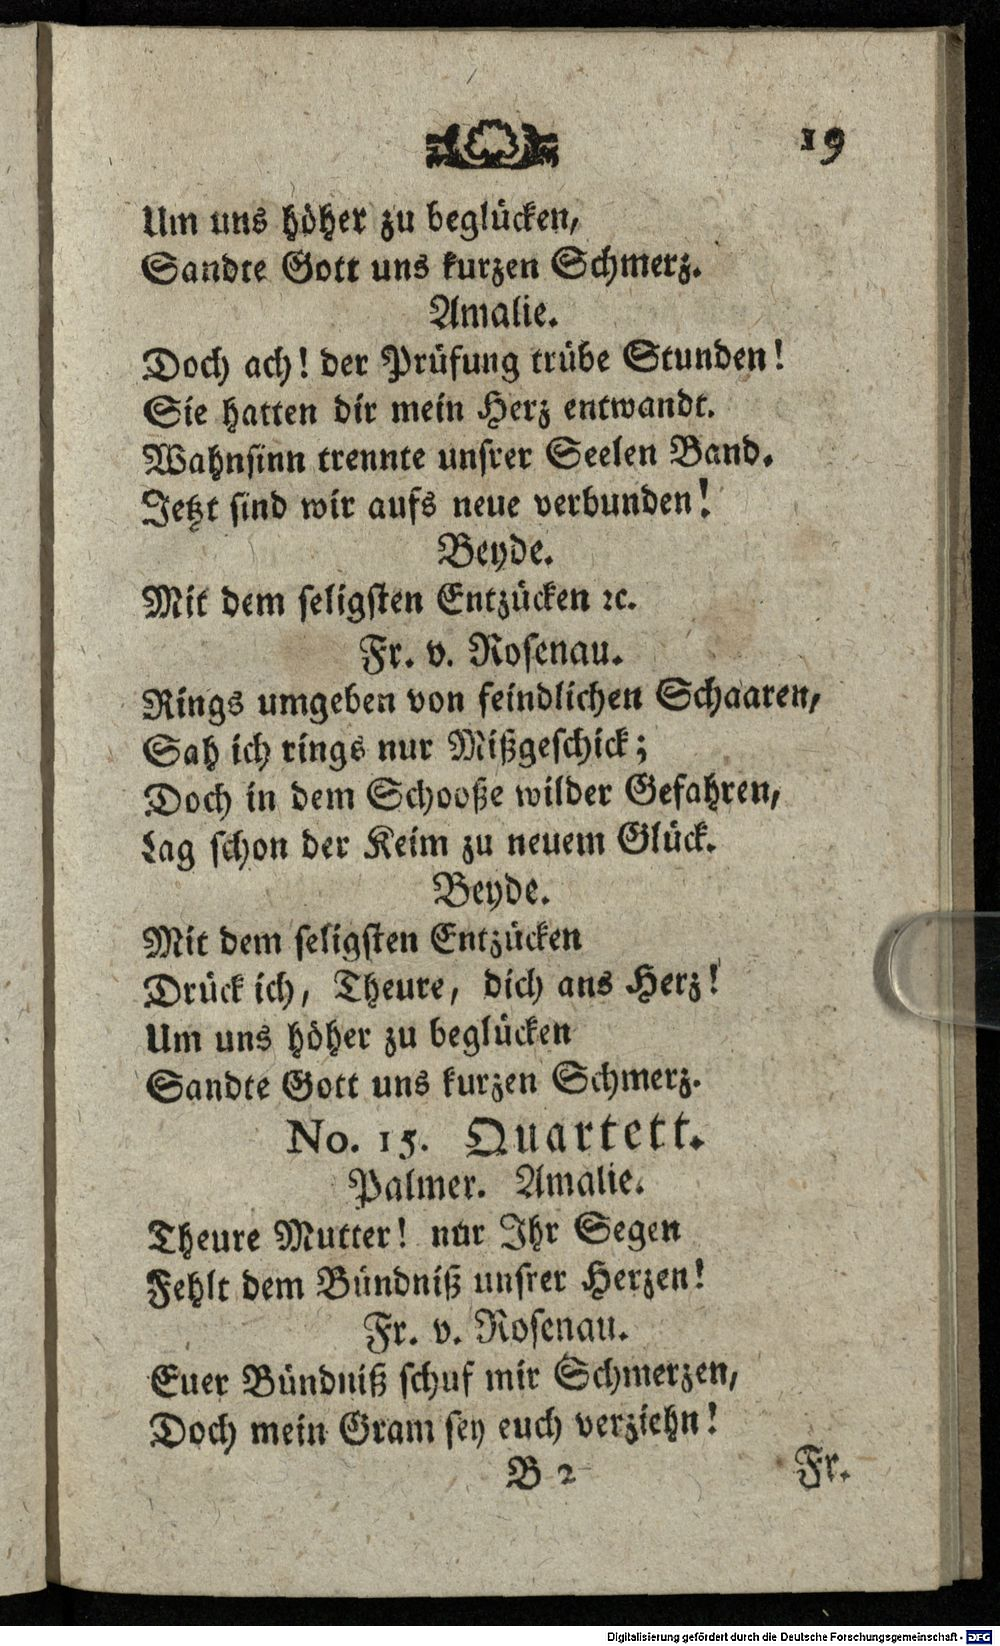 19
Um uns höher zu beglücken,
Sandte Gott uns kurzen Schmerz.
Amalie.
Doch ach! der Prüfung trübe Stunden!
Sie hatten dir mein Herz entwandt.
Wahnsinn trennte unsrer Seelen Band.
Jetzt sind wir aufs neue verbunden!
Beyde.
Mit dem seligsten Entzücken ꝛc.
Fr. v. Rosenau.
Rings umgeben von feindlichen Schaaren,
Sah ich rings nur Mißgeschick;
Doch in dem Schooße wilder Gefahren,
Lag schon der Keim zu neuem Glück.
Beyde.
Mit dem seligsten Entzücken
Drück ich, Theure, dich ans Herz!
Um uns höher zu beglücken
Sandte Gott uns kurzen Schmerz.
No. 15. Quartett.
Palmer. Amalie.
Theure Mutter! nur Ihr Segen
Fehlt dem Bündniß unsrer Herzen!
Fr. v. Rosenau.
Euer Bündniß schuf mir Schmerzen,
Doch mein Gram sey euch verziehn!
B 2 Fr.
Digitalisierung gefördert durch die Deutsche Forschungsgemeinschaft - DFG